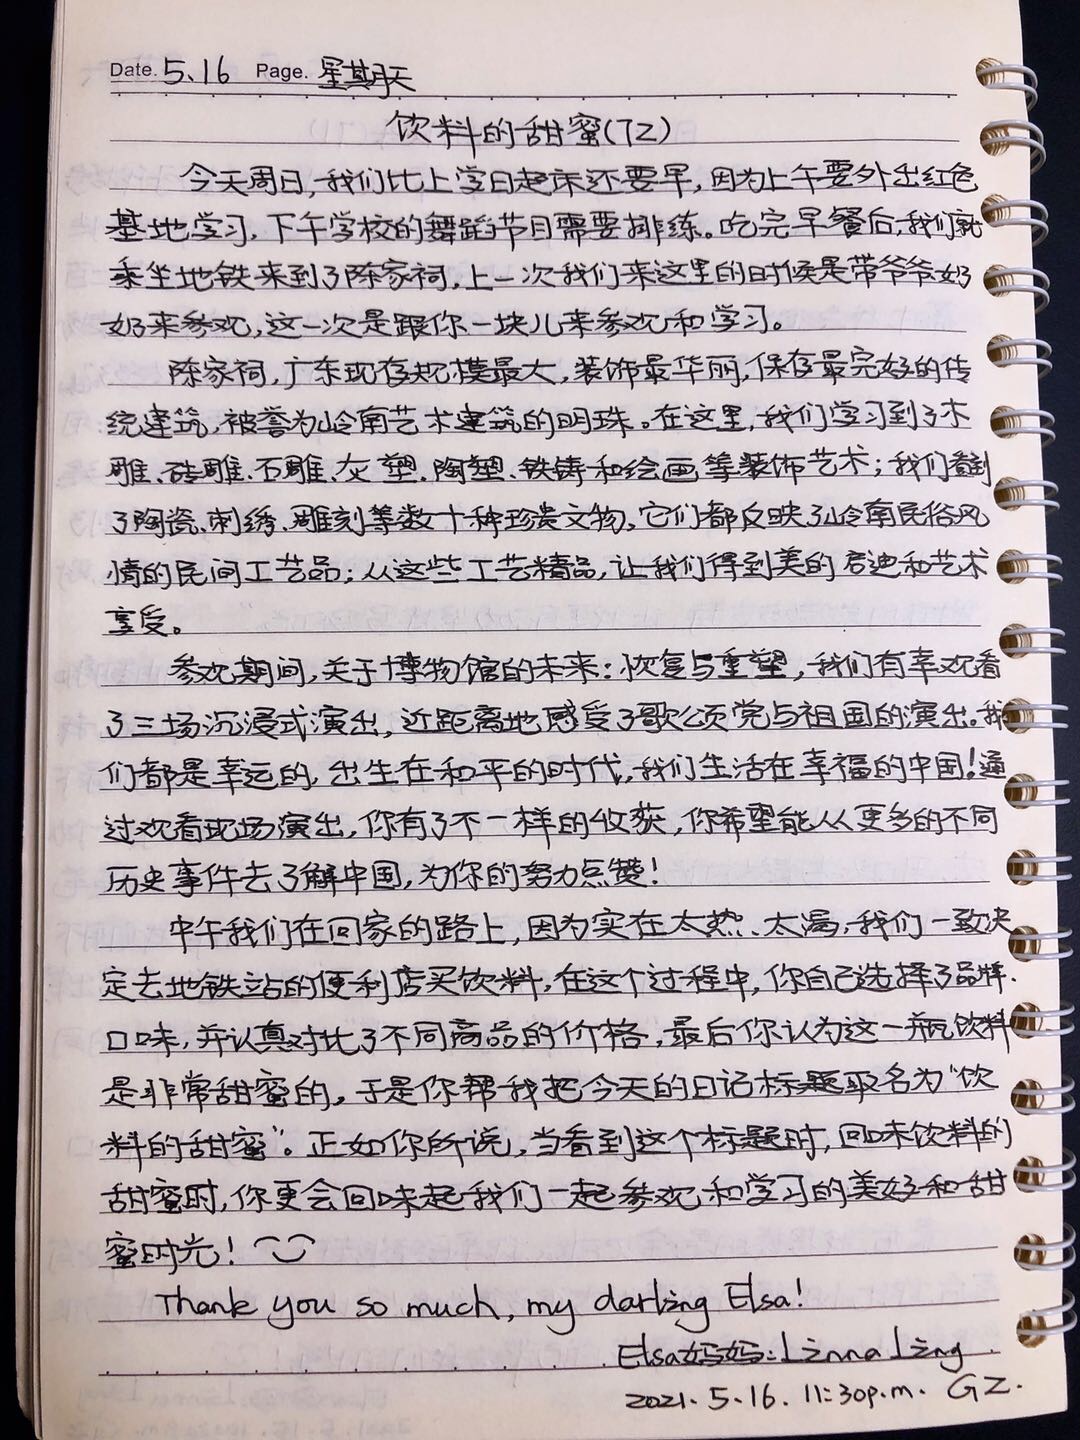 Date. 5.16 Page. 星期天
饮料的甜蜜(72)
今天周日,我们比上学日起床还要早,因为上午要外出红色
基地学习,下午学校的舞蹈节目需要排练。吃完早餐后,我们就
乘坐地铁来到了陈家祠,上一次我们来这里的时候是带爷爷奶
奶来参观,这一次是跟你一块儿来参观和学习。
陈家祠,广东现存规模最大,装饰最华丽,保存最完好的传
统建筑,被誉为岭南艺术建筑的明珠。在这里,我们学习到了木
雕、砖雕、石雕、灰塑、陶塑、铁铸和绘画等装饰艺术;我们看到
了陶瓷、刺绣、雕刻等数十种珍贵文物,它们都反映了岭南民俗风
情的民间工艺品;从这些工艺精品,让我们得到美的启迪和艺术
享受。
参观期间,关于博物馆的未来:恢复与重塑,我们有幸观看
了三场沉浸式演出,近距离地感受了歌颂党与祖国的演出。我
们都是幸运的,出生在和平的时代,我们生活在幸福的中国!通
过观看现场演出,你有了不一样的收获,你希望能从更多的不同
历史事件去了解中国,为你的努力点赞!
中午我们在回家的路上,因为实在太热、太渴,我们一致决
定去地铁站的便利店买饮料,在这个过程中,你自己选择了品牌、
口味,并认真对比了不同商品的价格,最后你认为这一瓶饮料
是非常甜蜜的,于是你帮我把今天的日记标题取名为“饮
料的甜蜜”。正如你所说,当看到这个标题时,回味饮料的
甜蜜时,你更会回味起我们一起参观和学习的美好和甜
蜜时光!
Thank you so much, my darling Elsa!
Elsa妈妈:Linna Ling
2021.5.16. 11:30p.m. GZ.